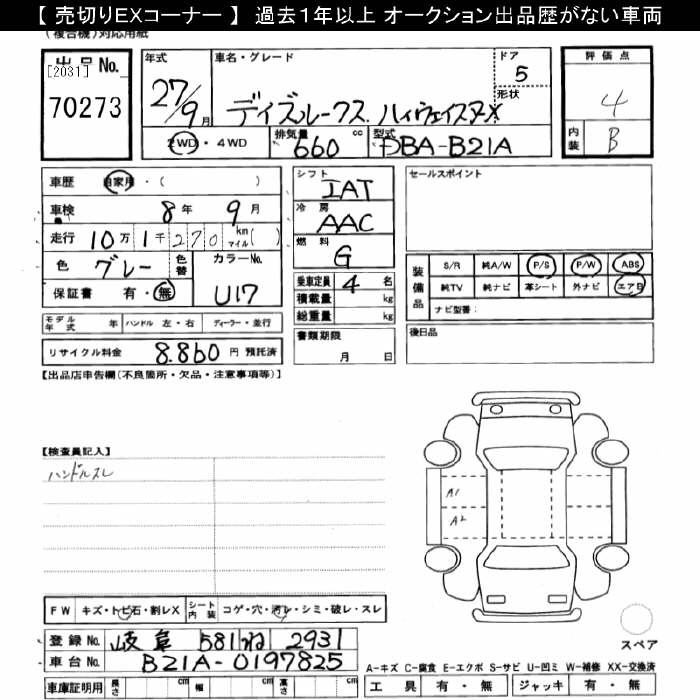 【 売切りEXコーナー 】 過去１年以上 オークション出品歴がない車両
(複合機)対応用紙
出品No.
[2031]
70273
年式
27/9月
車名・グレード
デイズルークス ハイウェイスタX
ドア
5
形状
評価点
4
内装
B
2WD・4WD
排気量
660 cc
型式
DBA-B21A
車歴 自家用・( )
車検 8年 9月
走行 10万1千270 km マイル( )
色 グレー 色替 カラーNo. U17
保証書 有・無
シフト
IAT
冷房
AAC
燃料
G
乗車定員 4 名
積載量 kg
総重量 kg
セールスポイント
装備品
S/R 純A/W P/S P/W ABS
純TV 純ナビ 革シート 外ナビ エアB
ナビ型番:
モデル年式 年 ハンドル 左・右 ディーラー・並行
リサイクル料金 8.860 円 預託済
書類期限
月 日
後日品
【出品店申告欄(不良箇所・欠品・注意事項等)】
【検査員記入】
ハンドルスレ
A1
A2
FW キズ・トビ石・割レX シート内装 コゲ・穴・汚レ・シミ・破レ・スレ
スペア
登録No. 岐阜 581 ね 2931
車台No. B21A-0197825
A-キズ C-腐食 E-エクボ S-サビ U-凹ミ W-補修 XX-交換済
車庫証明用 長さ cm 幅 cm 高さ cm
工具 有・無 ジャッキ 有・無